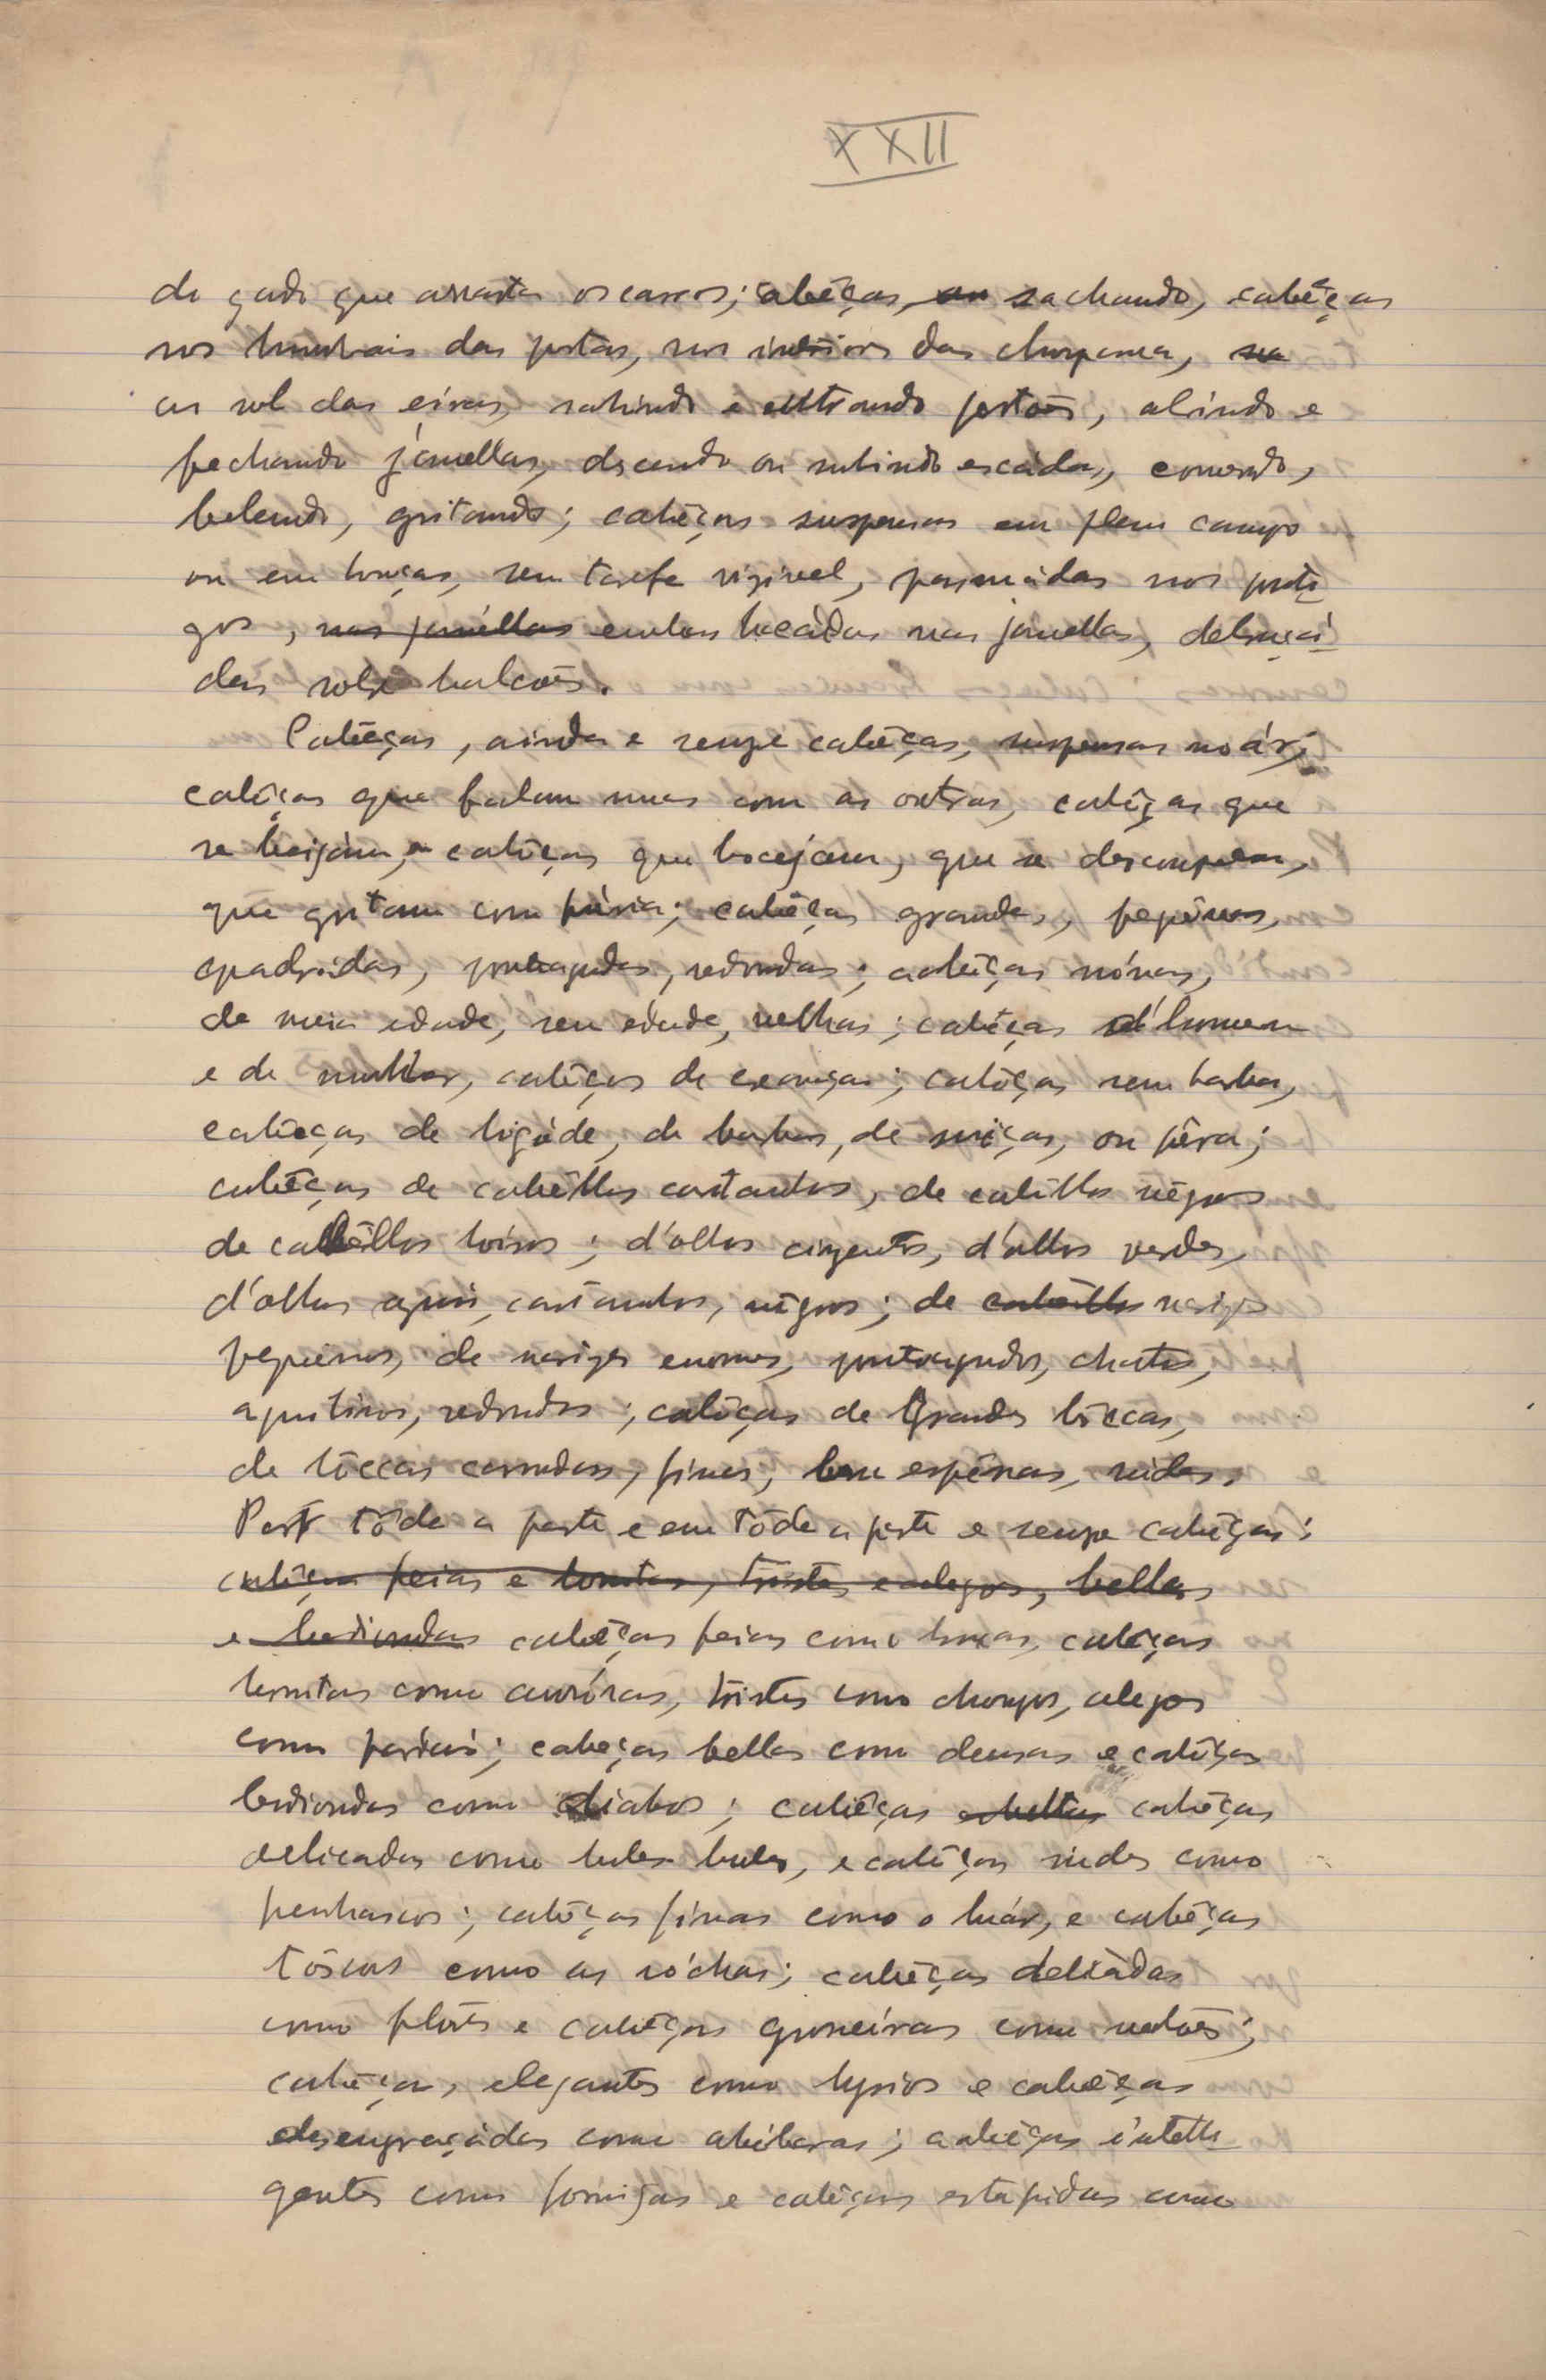 XXII
do gado que arrasta os carros; cabêças, sachando, cabêças
nos humbrais das portas, nos interiores das choupanas,
ao sol das eiras, sahindo e entrando portões, abrindo e
fechando janellas, descendo ou subindo escádas, comendo,
bebendo, gritando; cabêças suspensas em pleno campo
ou em , sem tarefa vizivel, pasmádas nos posti
gos, nas janéllas embasbacádas nas janellas, debruçá
das sobre balcões.
Cabêças, ainda e sempe cabêças, suspensas no ár;
cabêças que falam umas com as outras, cabêças que
se beijam, e cabêças que bocejam, que se descompõem,
que gritam com fúria; cabêças grandes, peqûenas,
quadrádas, ponteagudas, redondas; cabêças nóvas,
de meia edade, sem edade, velhas; cabêças d'homem
e de mulher, cabêças de creanças; cabêças sem barba,
cabêças de bigóde, de barbas, de suiças, ou pêra;
cabêças de cabêllos castanhos, de cabêllos nêgros
de cabêllos loiros; d'olhos cinzentos, d'olhos verdes,
d'olhos azuis, castanhos, nêgros; de cabêllos narizes
pequenos, de narizes enormes, ponteagudos, chatos,
aquilinos, redondos; cabêças de Grandes bôccas,
de bôccas carnudas, finas, bem espêssas, rudes.
Por tôda a parte e em tôda a parte e sempe cabêças:
cabêças feias e bonitas, tristes e alegres, bellas
e hediondas cabêças feias como bruxas, cabêças
bonitas como auróras, tristes como choupos, alegres
como pardais; cabeças bellas como deusas e cabêças
hediondas como diabos; cabêças e bellas cabêças
delicadas como bules-bules, e cabêças rudes como
penhascos; cabêças finas como o luár, e cabêças
tôscas como as róchas; cabêças deliádas
como flôres e cabêças groseiras como melões;
cabêças, elegantes como lyrios e cabêças
desengraçádas como abóboras; cabêças intelli
gentes como formigas e cabêças estupidas como